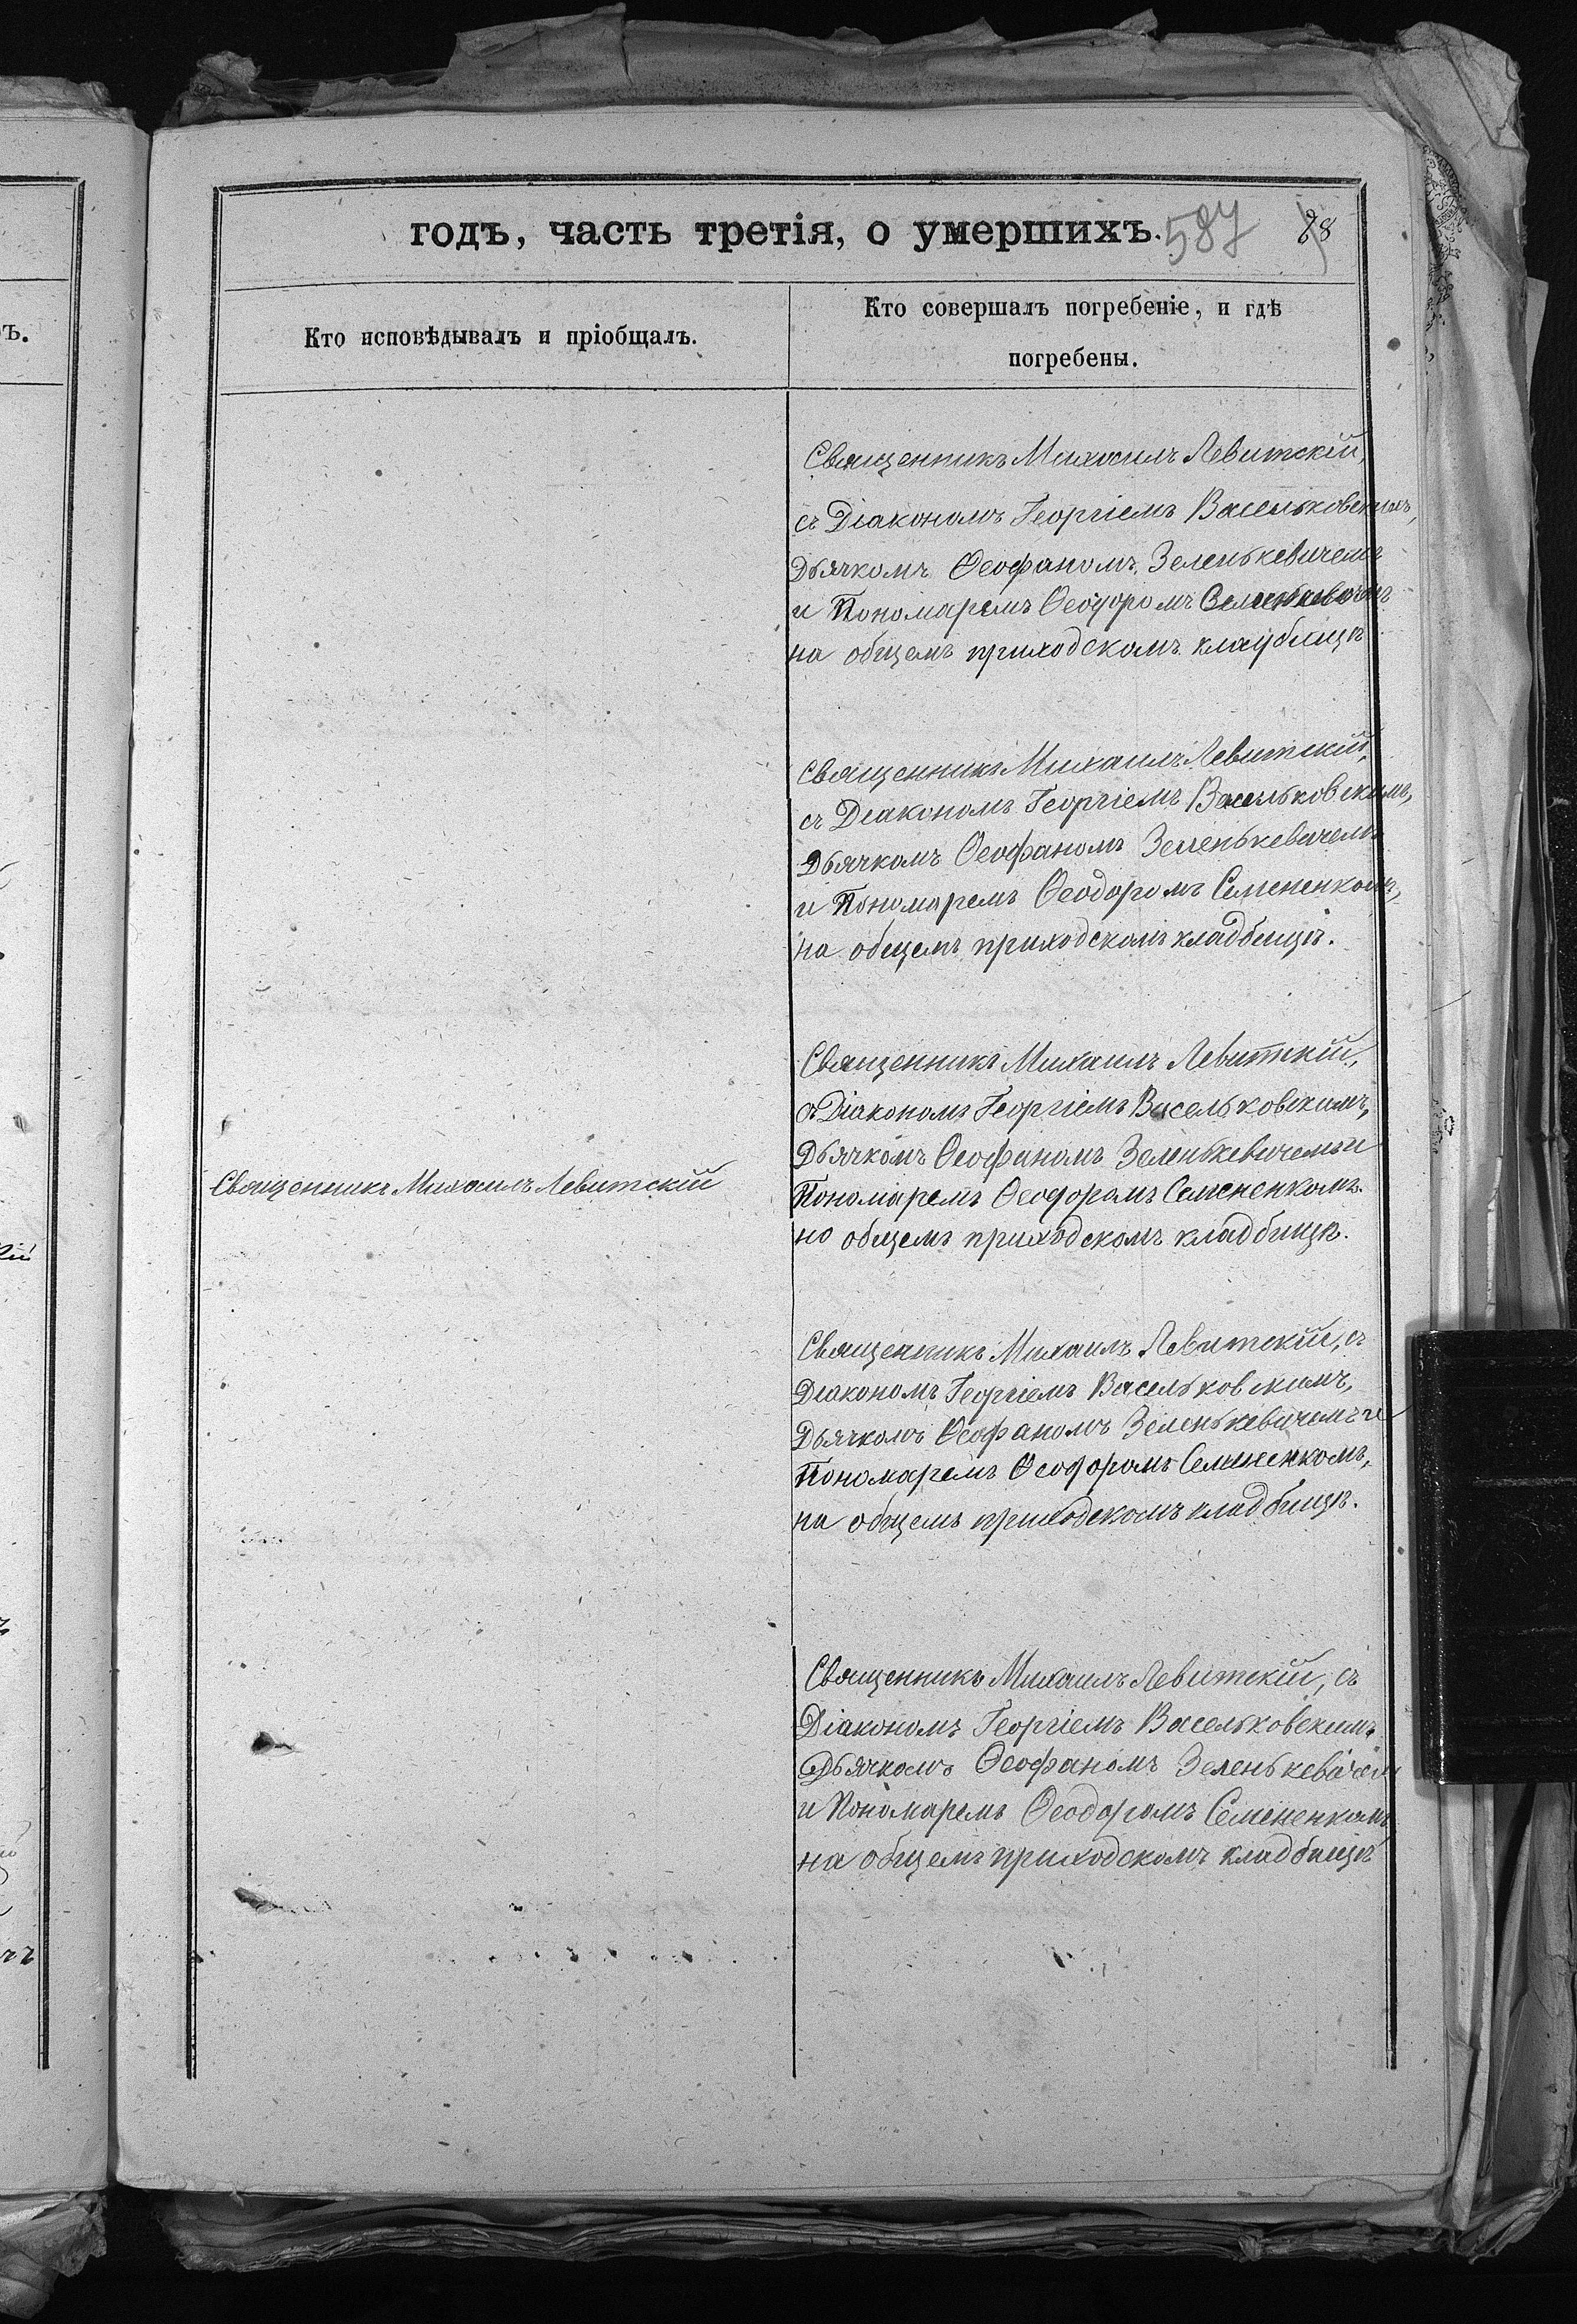 годъ, часть третія, о умершихъ. 587 88
Кто исповѣдывалъ и пріобщалъ.
Кто совершалъ погребеніе, и гдѣ
погребены.
Священникъ Михаилъ Левитскій,
съ Діакономъ Георгіемъ Васельковскимъ,
Дьячкомъ Ѳеофаномъ Зеленькевичемъ
и Пономаремъ Ѳеодоромъ
на общемъ приходскомъ кладбищѣ
Священникъ Михаилъ Левитскій,
съ Діакономъ Георгіемъ Васельковскимъ,
Дьячкомъ Ѳеофаномъ Зеленькевичемъ
и Пономаремъ Ѳеодоромъ Семененкомъ,
на общемъ приходскомъ кладбищѣ.
Священникъ Михаилъ Левитскій,
съ Діакономъ Георгіемъ Васельковскимъ,
Дьячкомъ Ѳеофаномъ Зеленькевичемъ и
Священникъ Михаилъ Левитскій
Пономаремъ Ѳеодоромъ Семененкомъ.
на общемъ приходскомъ кладбищѣ.
Священникъ Михаилъ Левитскій, съ
Діакономъ Георгіемъ Васельковскимъ,
Дьячкомъ Ѳеофаномъ Зеленькевичемъ и
Пономаремъ Ѳеодоромъ Семененкомъ,
на общемъ приходскомъ кладбищѣ.
Священникъ Михаилъ Левитскій, съ
Діакономъ Георгіемъ Васельковскимъ
Дьячкомъ Ѳеофаномъ Зеленькевичем
и Пономаремъ Ѳеодоромъ Семененкомъ
на общемъ приходскомъ кладбищѣ